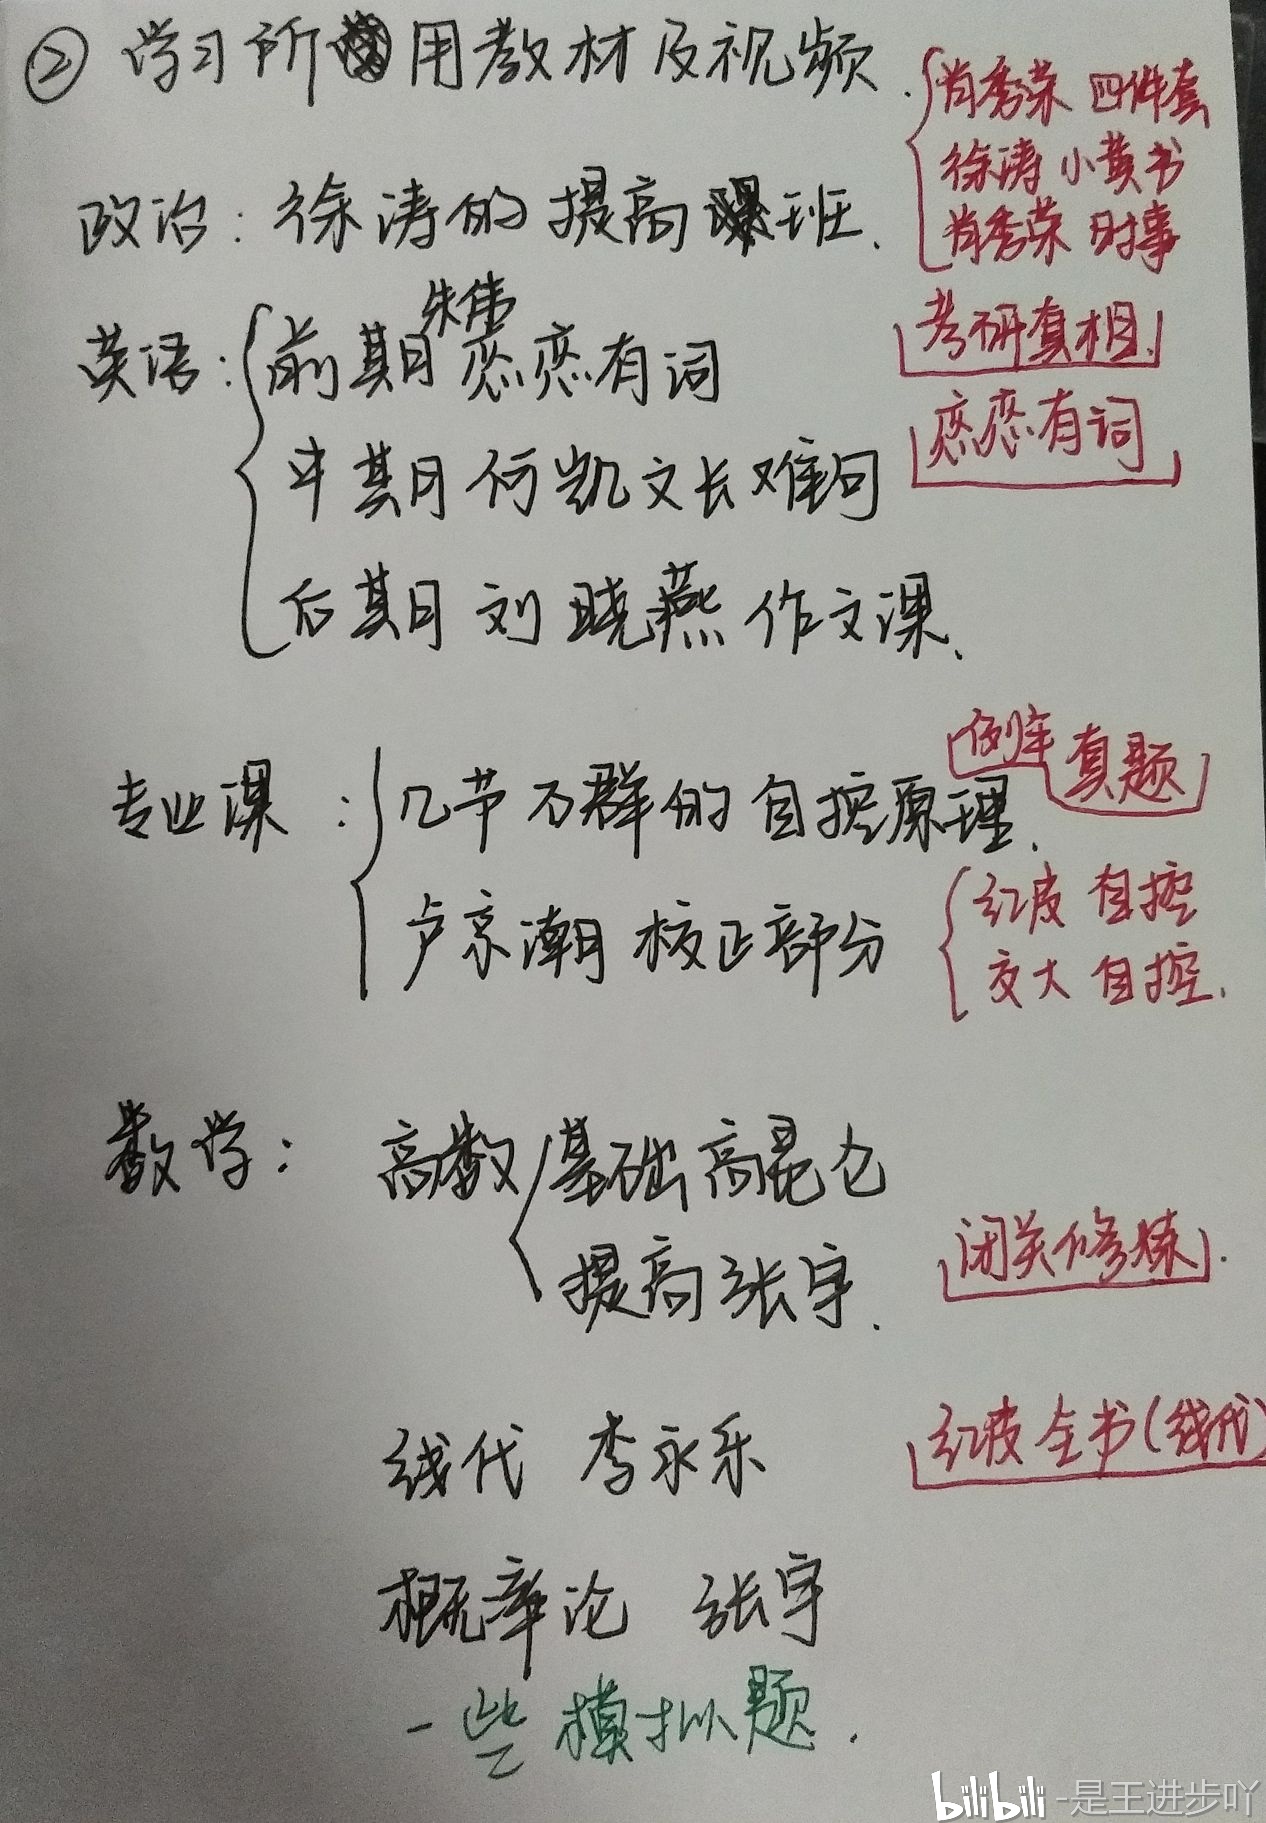 ② 学习所用教材及视频.
肖秀荣 四件套
徐涛 小黄书
肖秀荣 时事
政治: 徐涛的提高班.
考研真相.
英语: 前期 朱伟 恋恋有词
恋恋有词
中期 何凯文长难句
后期 刘晓燕 作文课.
例年 真题
专业课: 几节不群的自控原理.
红皮 自控
卢京潮 校正部分
交大 自控.
数学: 高数 基础高昆仑
提高张宇.
闭关修炼.
线代 李永乐
红皮全书(线代)
概率论 张宇
一些模拟题.
bilibili -是王进步吖